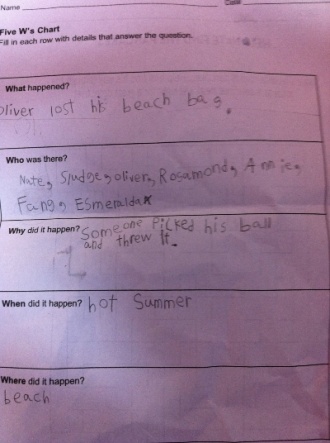 Name
Five W's Chart
Fill in each row with details that answer the question.
What happened?
Oliver lost his beach bag.
Who was there?
Nate, Sludge, oliver, Rosamond, Annie,
Fang, Esmeralda
Why did it happen? Someone Picked his ball
and threw It.
When did it happen? hot Summer
Where did it happen?
beach